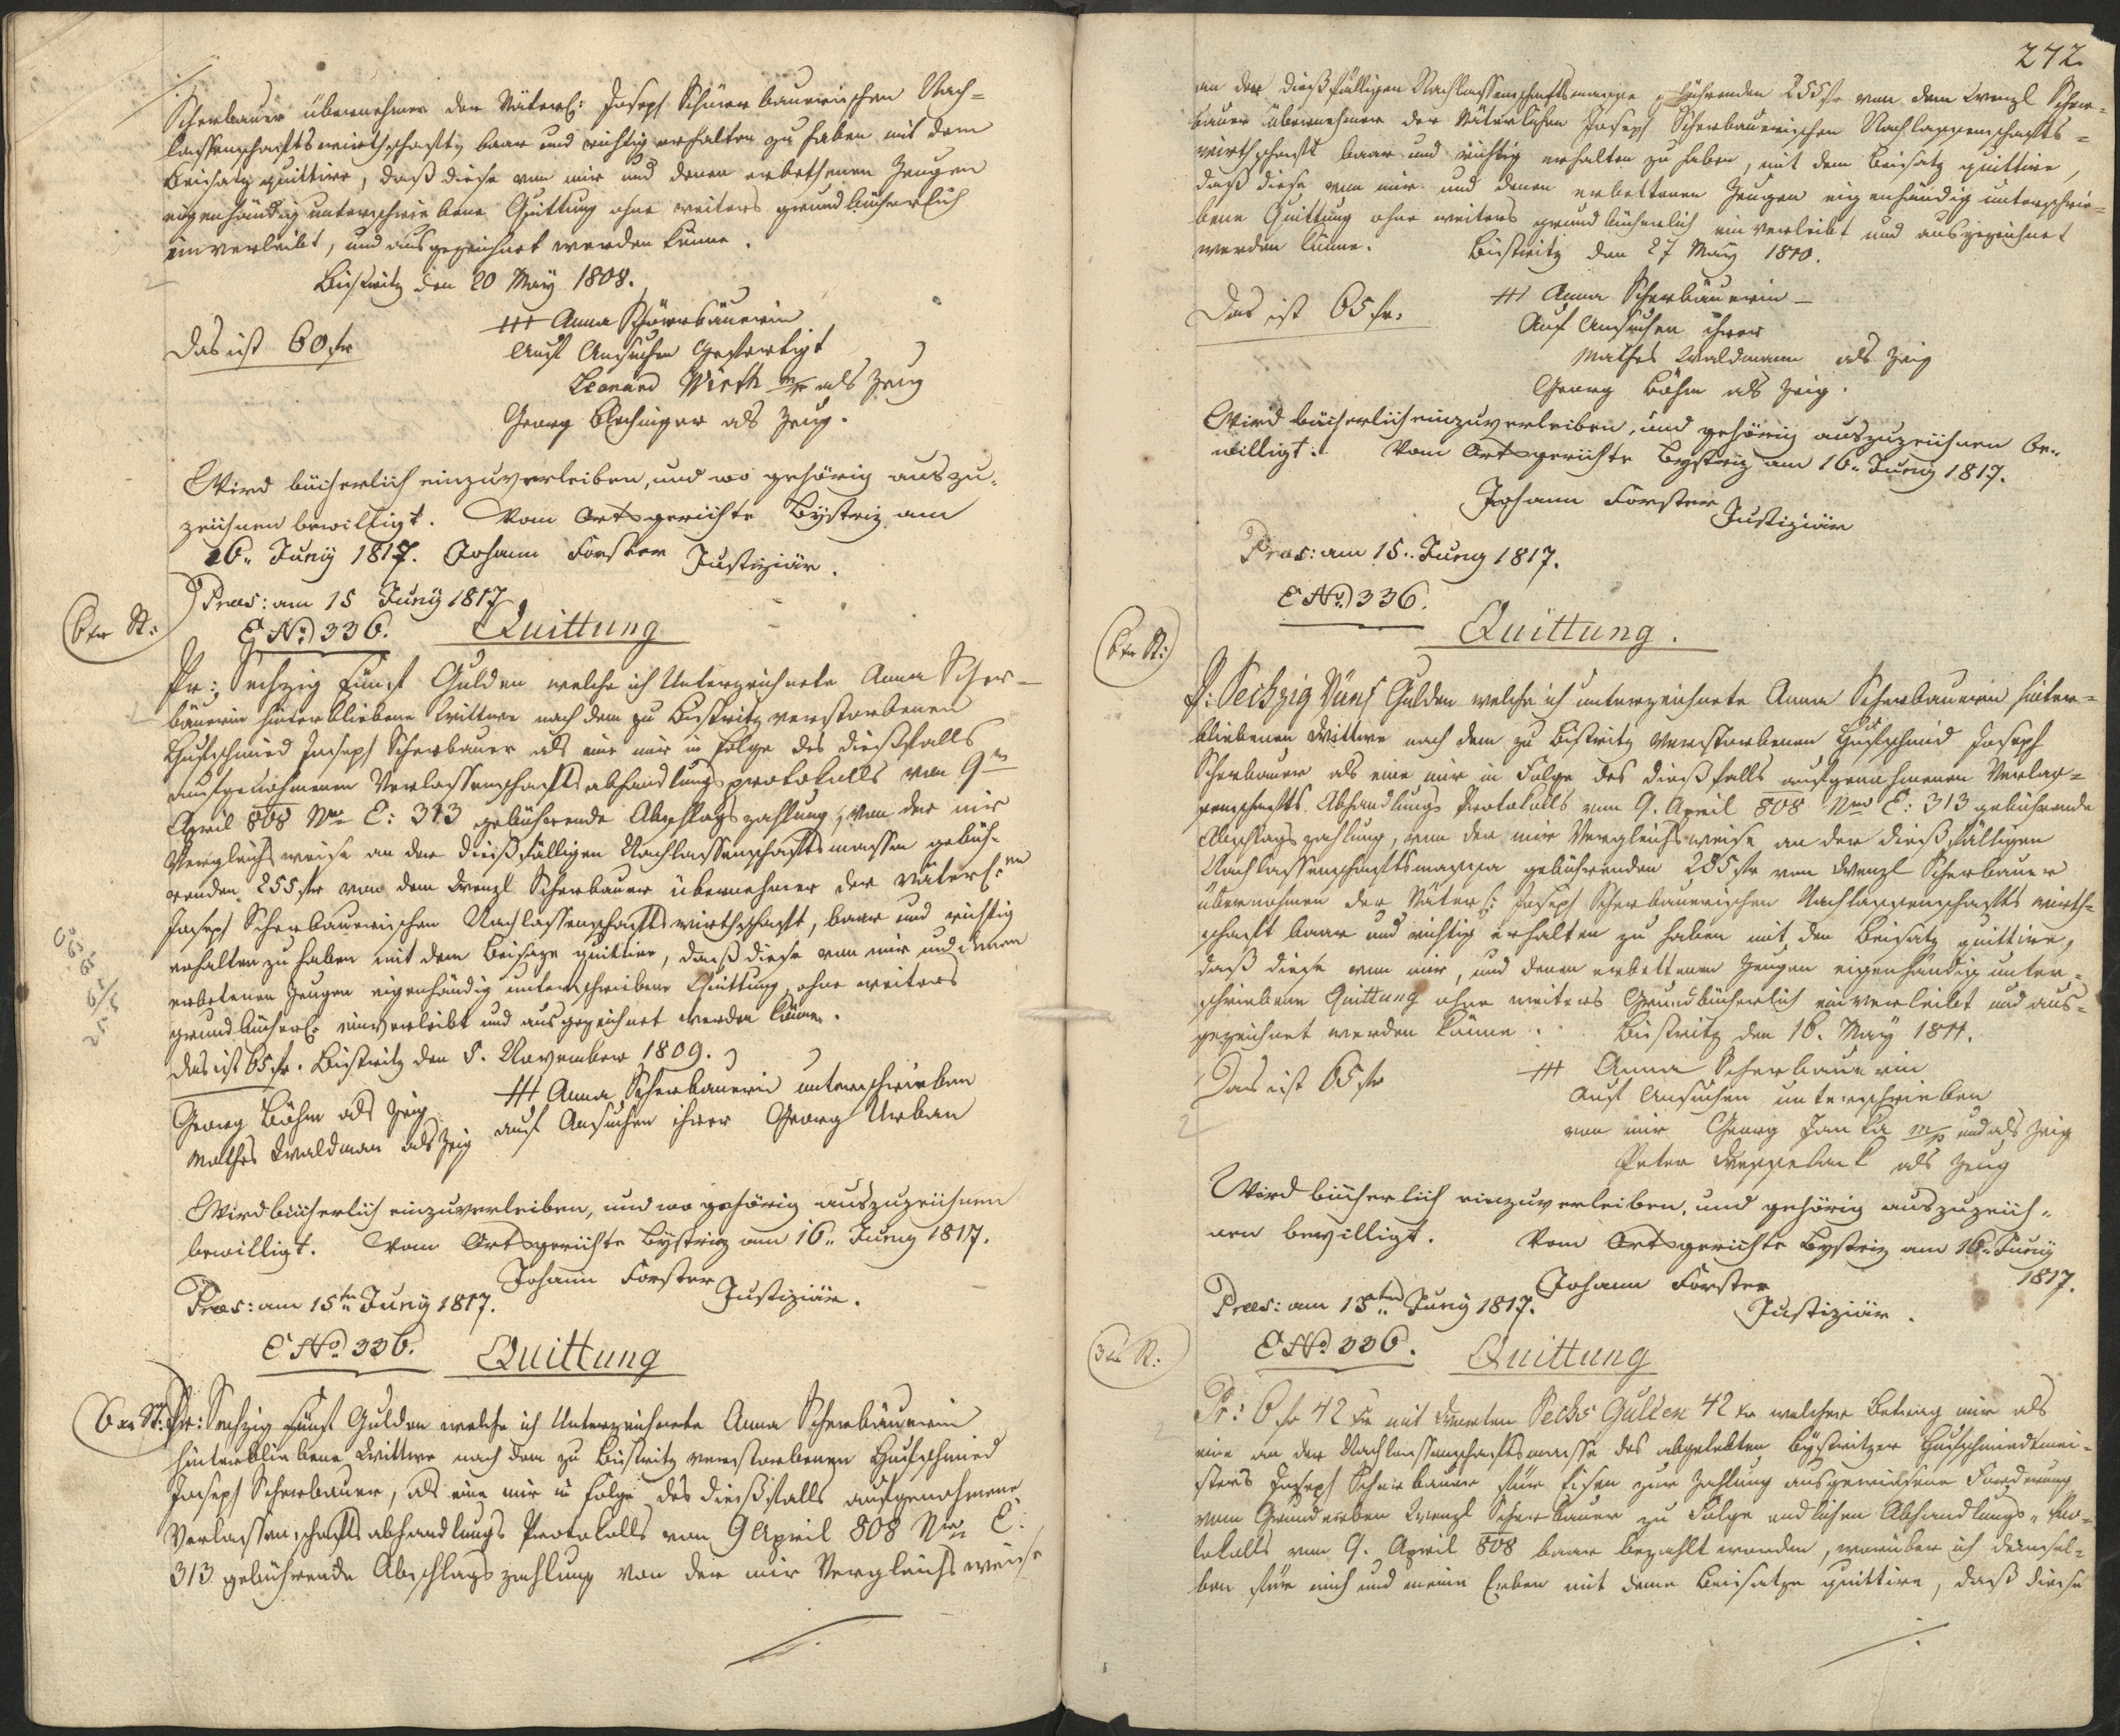 Scherbauer übernehmer der Väterl: Joseph Scherbauerischen Nach=
lassenschaftswirthschaft, baar und richtig erhalten zu haben mit dem
Beisatz quittire, daß diese von mir und denen erbethenen Zeugen
eigenhändig unterschriebene Quittung ohne weiters grundbücherlich
einverleibt, und ausgezeichnet werden könne.
Bistritz den 20 May 1808.
Das ist 60 fr
+++ Anna Schörbäuerin
Auf Ansuchen Gefertigt
Leonard Wirth m/p als Zeug
Georg Blechinger als Zeug.
Wird bücherlich einzuverleiben, und wo gehörig auszu=
zeichnen bewilligt. Vom Ortsgerichte Bystriz am
16. Juny 1817. Johann Forster Justiziär.
Praes: am 15 Juny 1817
6 xr St:
E No 336. Quittung
Pr: Sechzig Fünf Gulden welche ich Unterzeichnete Anna Scher=
bäuerin hinterbliebene Wittwe nach dem zu Bistritz verstorbenen
Hufschmied Joseph Scherbauer als eine mir in Folge des dießfalls
aufgenohmenen Verlassenschaftsabhandlungsprotokolls vom 9ten
April 808 Nro E: 313 gebührende Abschlagszahlung, von der mir
Vergleichsweise an der dießfälligen Nachlassenschaftsmassa gebüh=
renden 255 fr von dem Wenzl Scherbauer übernehmer der Väterl:en
Joseph Scherbauerischen Nachlassenschaftswirthschaft, baar und richtig
erhalten zu haben mit dem Beisaze quittire, daß diese von mir und denen
erbetenen Zeugen eigenhändig unterschriebene Quittung ohne weiters
grundbücherl: einverleibt und ausgezeichnet werden könne.
das ist 65 fr. Bistritz den 5. November 1809.
+++ Anna Scherbauerin unterschrieben
Georg Böhm als Zeig auf Ansuchen ihrer Georg Urban
Mathes Waldman als Zeig
Wird bücherlich einzuverleiben, und wo gehörig auszuzeichnen
bewilligt. Vom Ortsgerichte Bystriz am 16. Juny 1817.
Johann Forster Justiziär.
Praes: am 15ten Juny 1817.
E No 336. Quittung
6 xr St: Pr: Sechzig Fünf Gulden welche ich Unterzeichnete Anna Scherbäuerin
hinterbliebene Wittwe nach dem zu Bistritz verstorbenen Hufschmied
Joseph Scherbauer, als eine mir in Folge des dießfalls aufgenohmene
Verlassenschaftsabhandlungs Protokolls vom 9 April 808 Nro E:
313 gebührende Abschlagszahlung von der mir Vergleichsweise
272
an der dießfälligen Nachlassenschaftsmassa gebührenden 255 fr von dem Wenzl Scher=
bauer übernehmer der Väterlichen Joseph Scherbauerischen Nachlassenschafts=
wirthschaft baar und richtig erhalten zu haben, mit dem Beisatz quittire,
daß diese von mir und denen erbettenen Zeugen eigenhändig unterschrie=
bene Quittung ohne weiters grundbücherlich einverleibt und ausgezeichnet
werden könne. Bistritz den 27 May 1810.
Das ist 65 fr.
+++ Anna Scherbäuerin
Auf Ansuchen ihrer
Mathes Waldmann als Zeig
Georg Böhm als Zeig.
Wird bücherlich einzuverleiben, und gehörig auszuzeichnen be=
willigt. Vom Ortsgerichte Bystriz am 16. Juny 1817.
Johann Forster Justiziär
Praes: am 15. Juny 1817.
E No 336.
6 xr St:
Quittung.
P: Sechzig Fünf Gulden welche ich unterzeichnete Anna Scherbauerin hinter=
bliebenen Wittwe nach dem zu Bistritz verstorbenen Hufschmid Joseph
Scherbauer als eine mir in Folge des dießfalls aufgenohmenen Verlas=
senschafts Abhandlungs Protokolls vom 9. April 808 Nro E: 313 gebührende
Abschlagszahlung, von der mir Vergleichsweise an der dießfälligen
Nachlassenschaftsmassa gebührenden 285 fr von Wenzl Scherbauer
übernehmer der Väterl: Joseph Scherbauerischen Nachlassenschafts wirth=
schaft baar und richtig erhalten zu haben mit den Beisatz quittire,
daß diese von mir, und denen erbettenen Zeugen eigenhändig unter=
schriebene Quittung ohne weiters Grundbücherlich einverleibt und aus=
gezeichnet werden könne. Bistritz den 16. May 1811.
Das ist 65 fr
+++ Anna Scherbauerin
auf Ansuchen unterschrieben
von mir Georg Janka m/p und als Zeig
Peter als Zeug
Wird bücherlich einzuverleiben, und gehörig auszuzeich=
nen bewilligt. Vom Ortsgerichte Bystriz am 16. Juny
1817.
Johann Forster
Justiziär.
Praes: am 15ten Juny 1817.
3 xr St:
E No 336. Quittung
Pr: 6 fr 42 xr mit Worten Sechs Gulden 42 xr welcher Betrag mir als
eine an der Nachlassenschaftsmassa des abgelebten Bystritzer Hufschmiedtmei=
sters Joseph Scherbauer für Eisen zur Zahlung ausgewiesene Forderung
vom Grunderben Wenzl Scherbauer zu Folge endlichen Abhandlungs=Pro=
tokolls vom 9. April 808 baar bezahlt worden, worüber ich demsel=
ben für mich und meine Erben mit deme Beisatze quittire, daß diese